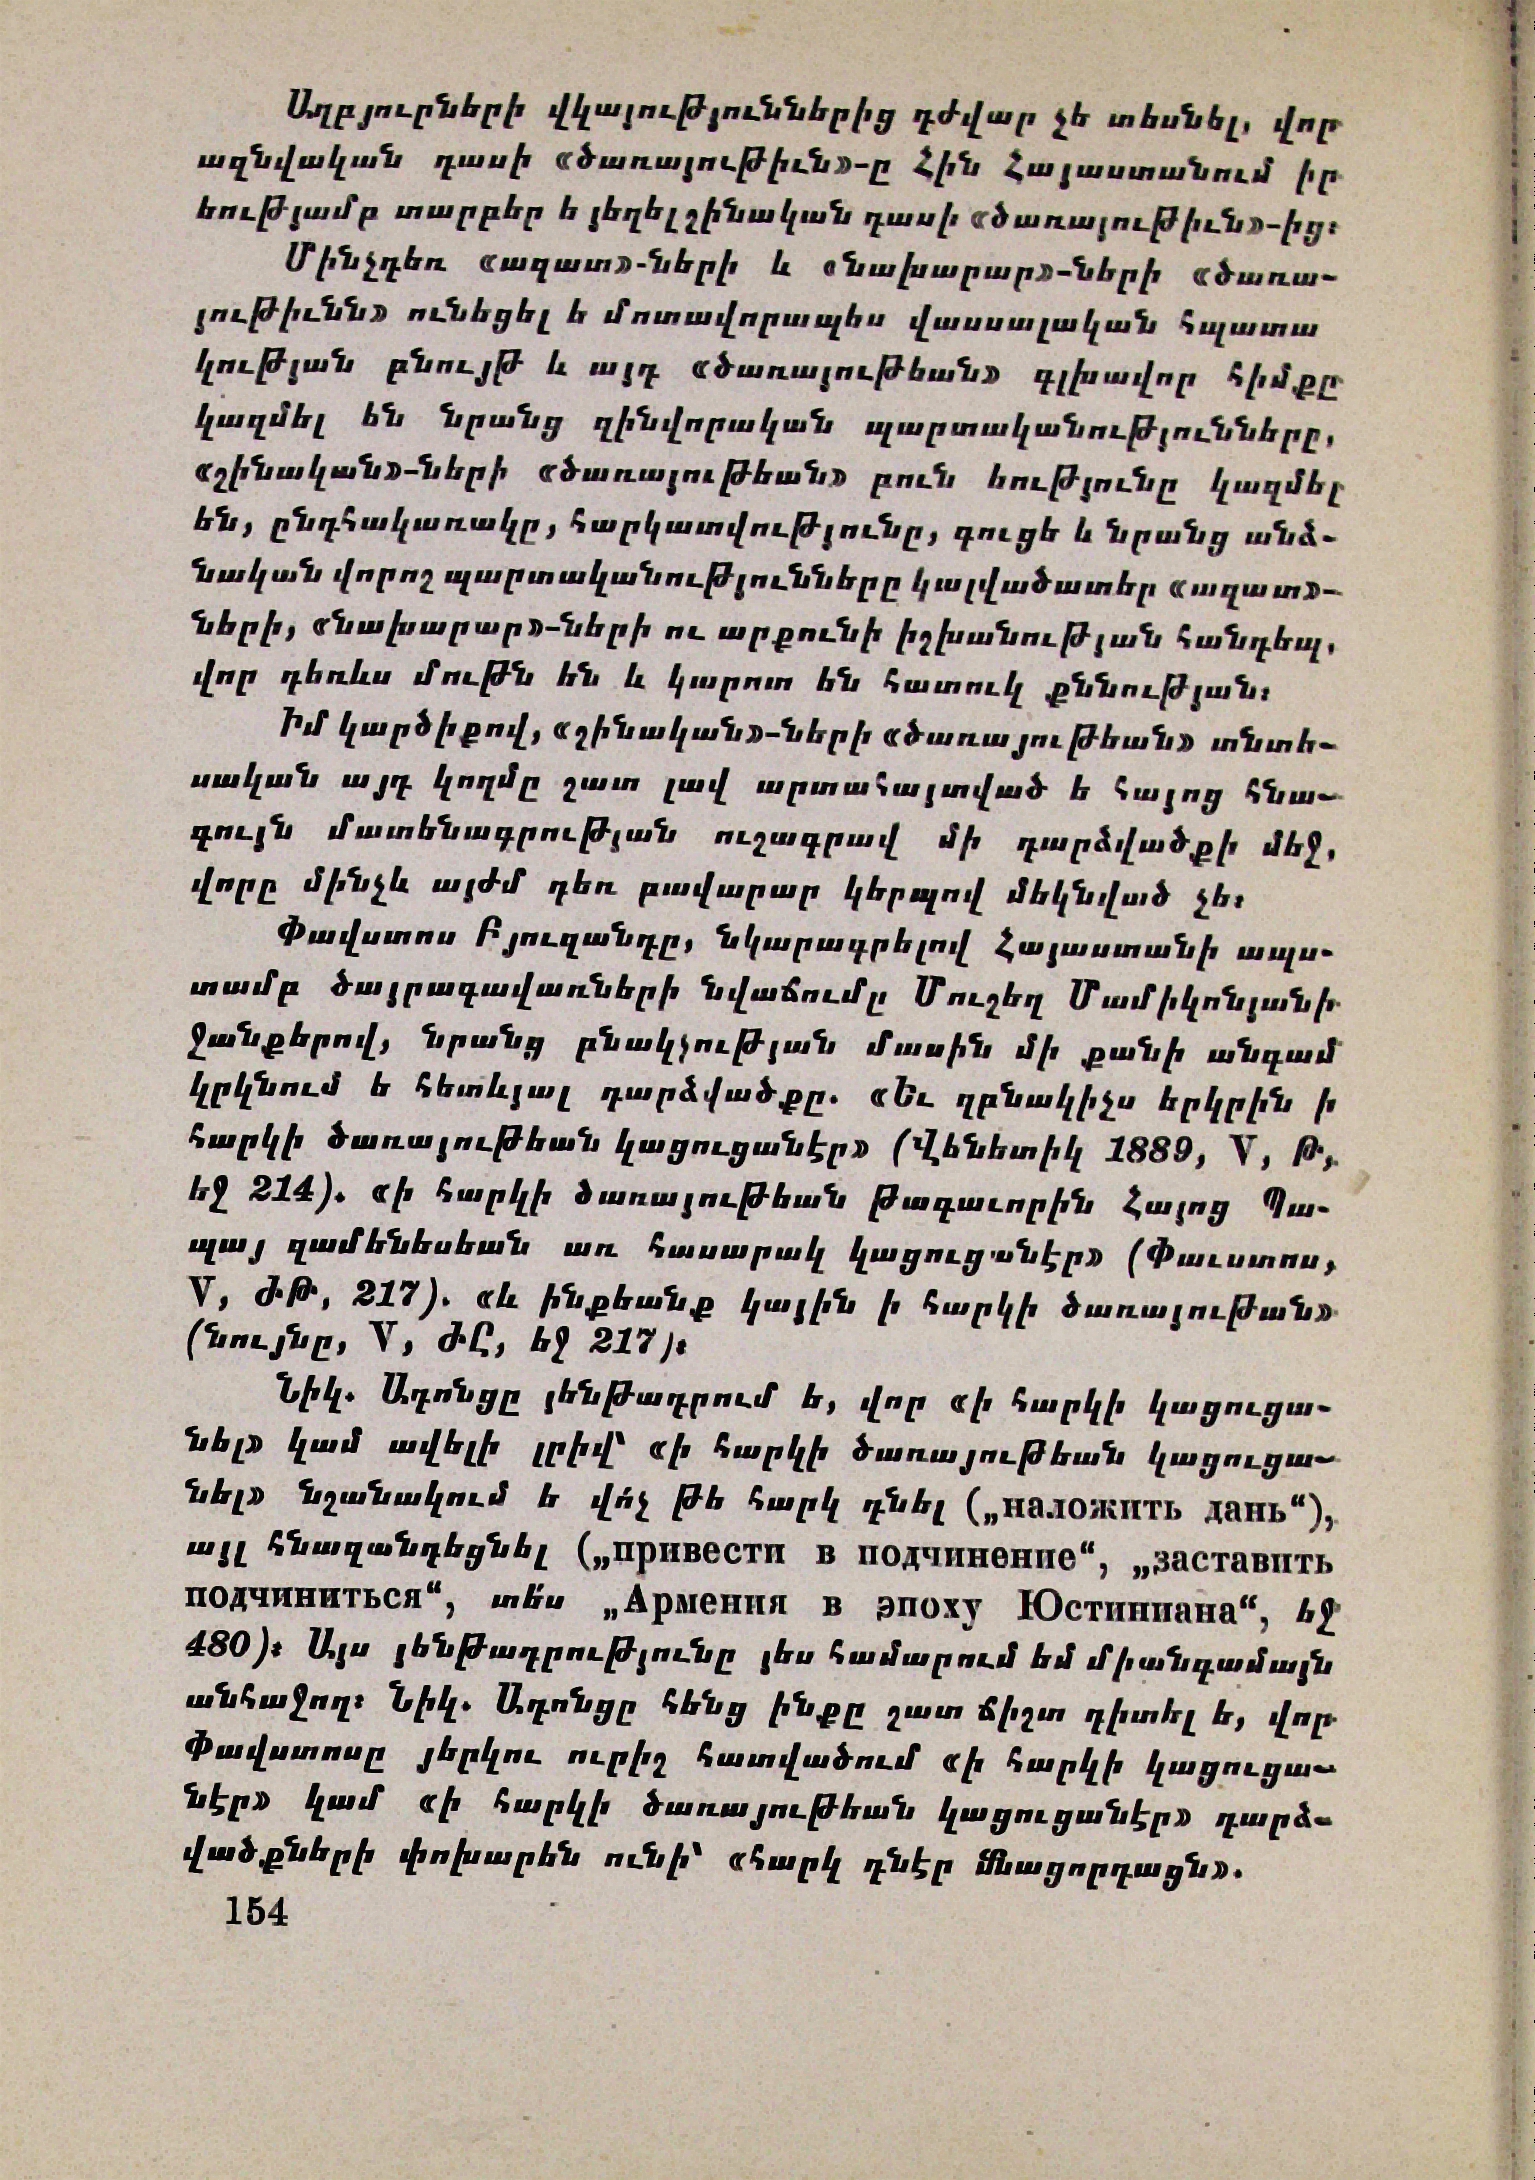 Աղբյուրների վկայություններից դժվար չե տեսնել, վոր
ազնվական դասի «ծառայութիւն»-ը Հին Հայաստանում իր
եությամբ տարբեր ե յեղել շինական դասի «ծառայութիւն»-ից։
Մինչդեռ «ազատ»-ների և «նախարար»-ների «ծառա-
յութիւնն» ունեցել ե մոտավորապես վասսալական հպատա
կության բնույթ և այդ «ծառայութեան» գլխավոր հիմքը
կազմել են նրանց զինվորական պարտականությունները,
«շինական»-ների «ծառայութեան» բուն եությունը կազմել
են, ընդհակառակը, հարկատվությունը, գուցե և նրանց անձ-
նական վորոշ պարտականությունները կալվածատեր «ազատ»-
ների, «նախարար»-ների ու արքունի իշխանության հանդեպ,
վոր դեռևս մութն են և կարոտ են հատուկ քննության։
Իմ կարծիքով, «շինական»-ների «ծառայութեան» տնտե-
սական այդ կողմը շատ լավ արտահայտված ե հայոց հնա-
գույն մատենագրության ուշագրավ մի դարձվածքի մեջ,
վորը մինչև այժմ դեռ բավարար կերպով մեկնված չե։
Փավստոս Բյուզանդը, նկարագրելով Հայաստանի ապս-
տամբ ծայրագավառների նվաճումը Մուշեղ Մամիկոնյանի
ջանքերով, նրանց բնակչության մասին մի քանի անգամ
կրկնում ե հետևյալ դարձվածքը. «Եւ զբնակիչս երկրին ի
հարկի ծառայութեան կացուցանէր» (Վենետիկ 1889, V, Թ,
եջ 214). «ի հարկի ծառայութեան թագաւորին Հայոց Պա-
պայ զամենեսեան առ հասարակ կացուցանէր» (Փաւստոս,
V, ԺԹ, 217). «և ինքեանք կային ի հարկի ծառայութան»
(նույնը, V, ԺԸ, եջ 217)։
Նիկ. Ադոնցը յենթադրում ե, վոր «ի հարկի կացուցա-
նել» կամ ավելի լրիվ՝ «ի հարկի ծառայութեան կացուցա-
նել» նշանակում ե վո՛չ թե հարկ դնել („наложить дань“),
այլ հնազանդեցնել („привести в подчинение“, „заставить
подчиниться“, տե՛ս „Армения в эпоху Юстиниана“, եջ
480)։ Այս յենթադրությունը յես համարում եմ միանգամայն
անհաջող։ Նիկ. Ադոնցը հենց ինքը շատ ճիշտ դիտել ե, վոր
Փավստոսը յերկու ուրիշ հատվածում «ի հարկի կացուցա-
նէր» կամ «ի հարկի ծառայութեան կացուցանէր» դարձ-
վածքների փոխարեն ունի՝ «հարկ դնէր մնացորդացն».
154